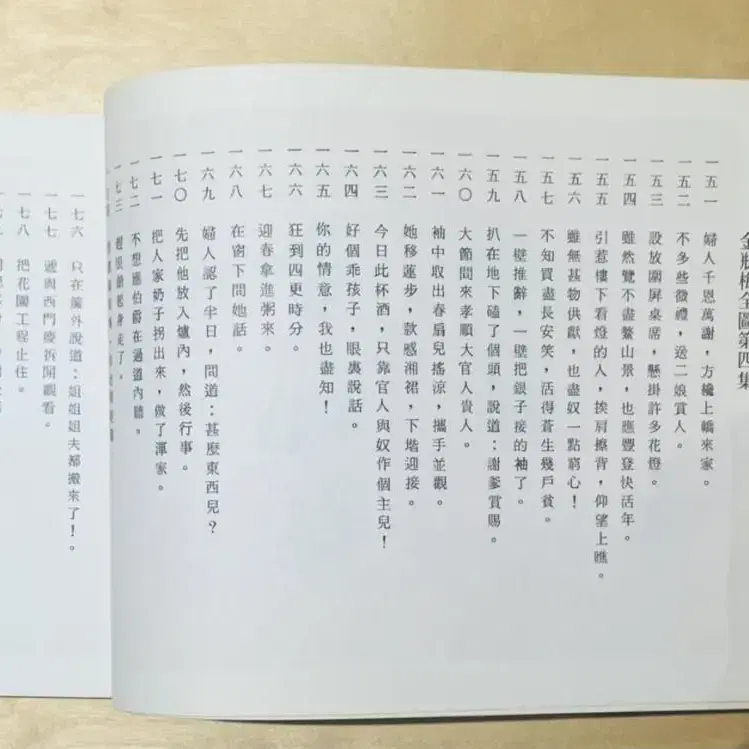 金瓶梅全圖第四集
一五一 婦人千恩萬謝，方纔上轎來家。
一五二 不多些微禮，送二娘賞人。
一五三 設放圍屏桌席，懸掛許多花燈。
一五四 雖然覽不盡鰲山景，也應豐登快活年。
一五五 引惹樓下看燈的人，挨肩擦背，仰望上瞧。
一五六 雖無甚物供獻，也盡奴一點窮心！
一五七 不知買盡長安笑，活得蒼生幾戶貧。
一五八 一壁推辭，一壁把銀子接的袖了。
一五九 扒在地下磕了個頭，說道：謝爹賞賜。
一六〇 大節間來孝順大官人貴人。
一六一 袖中取出春扇兒搖涼，攜手並觀。
一六二 她移蓮步，欵感湘裙，下堦迎接。
一六三 今日此杯酒，只靠官人與奴作個主兒！
一六四 好個乖孩子，眼裏說話。
一六五 你的情意，我也盡知！
一六六 狂到四更時分。
一六七 迎春拿進粥來。
一六八 在窗下問她話。
一六九 婦人認了半日，問道：甚麼東西兒？
一七〇 先把他放入爐內，然後行事。
一七一 把人家奶子拐出來，做了渾家。
一七二 不想應伯爵在過道內聽。
一七三 趕眼
一七六 只在簾外說道：姐姐姐夫都搬來了！。
一七七 遞與西門慶拆開觀看。
一七八 把花園工程止住。